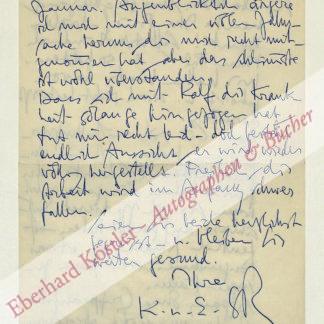 Januar. Augenblicklich ärgere
ich mich mit einer vollen Zahn-
sache herum, die mich recht mit-
genommen hat, aber das schlimmste
ist wohl überstanden.
Dass sich mit Ralf die Krank-
heit solange hingezogen hat
tut mir recht leid - doch besteht
endlich Aussicht, er wird wieder
völlig hergestellt. Freilich die
Arbeit wird im Anfang schwer
fallen.
Seien Sie beide herzlichst
gegrüsst - u. bleiben Sie
weiter gesund.
Ihre
K. u. E. SR
Eberhard Köstler - Autographen & Bücher